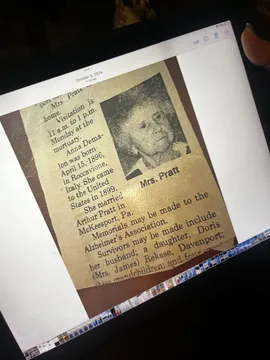 October 9, 2024
Mrs. Pratt
home.
Visitation is
11 a.m. to 1 p.m.
Monday at the
mortuary.
Anna Dema-
ion was born
April 15, 1896,
in Roccavione,
Italy. She came
to the United
States in 1899.
She married
Arthur Pratt in
McKeesport, Pa.
Memorials may be made to the
Alzheimer's Association.
Survivors may be made include
her husband; a daughter, Doris
(Mrs. James) Rekese, Davenport;
grandchildren; and
Mrs. Pratt